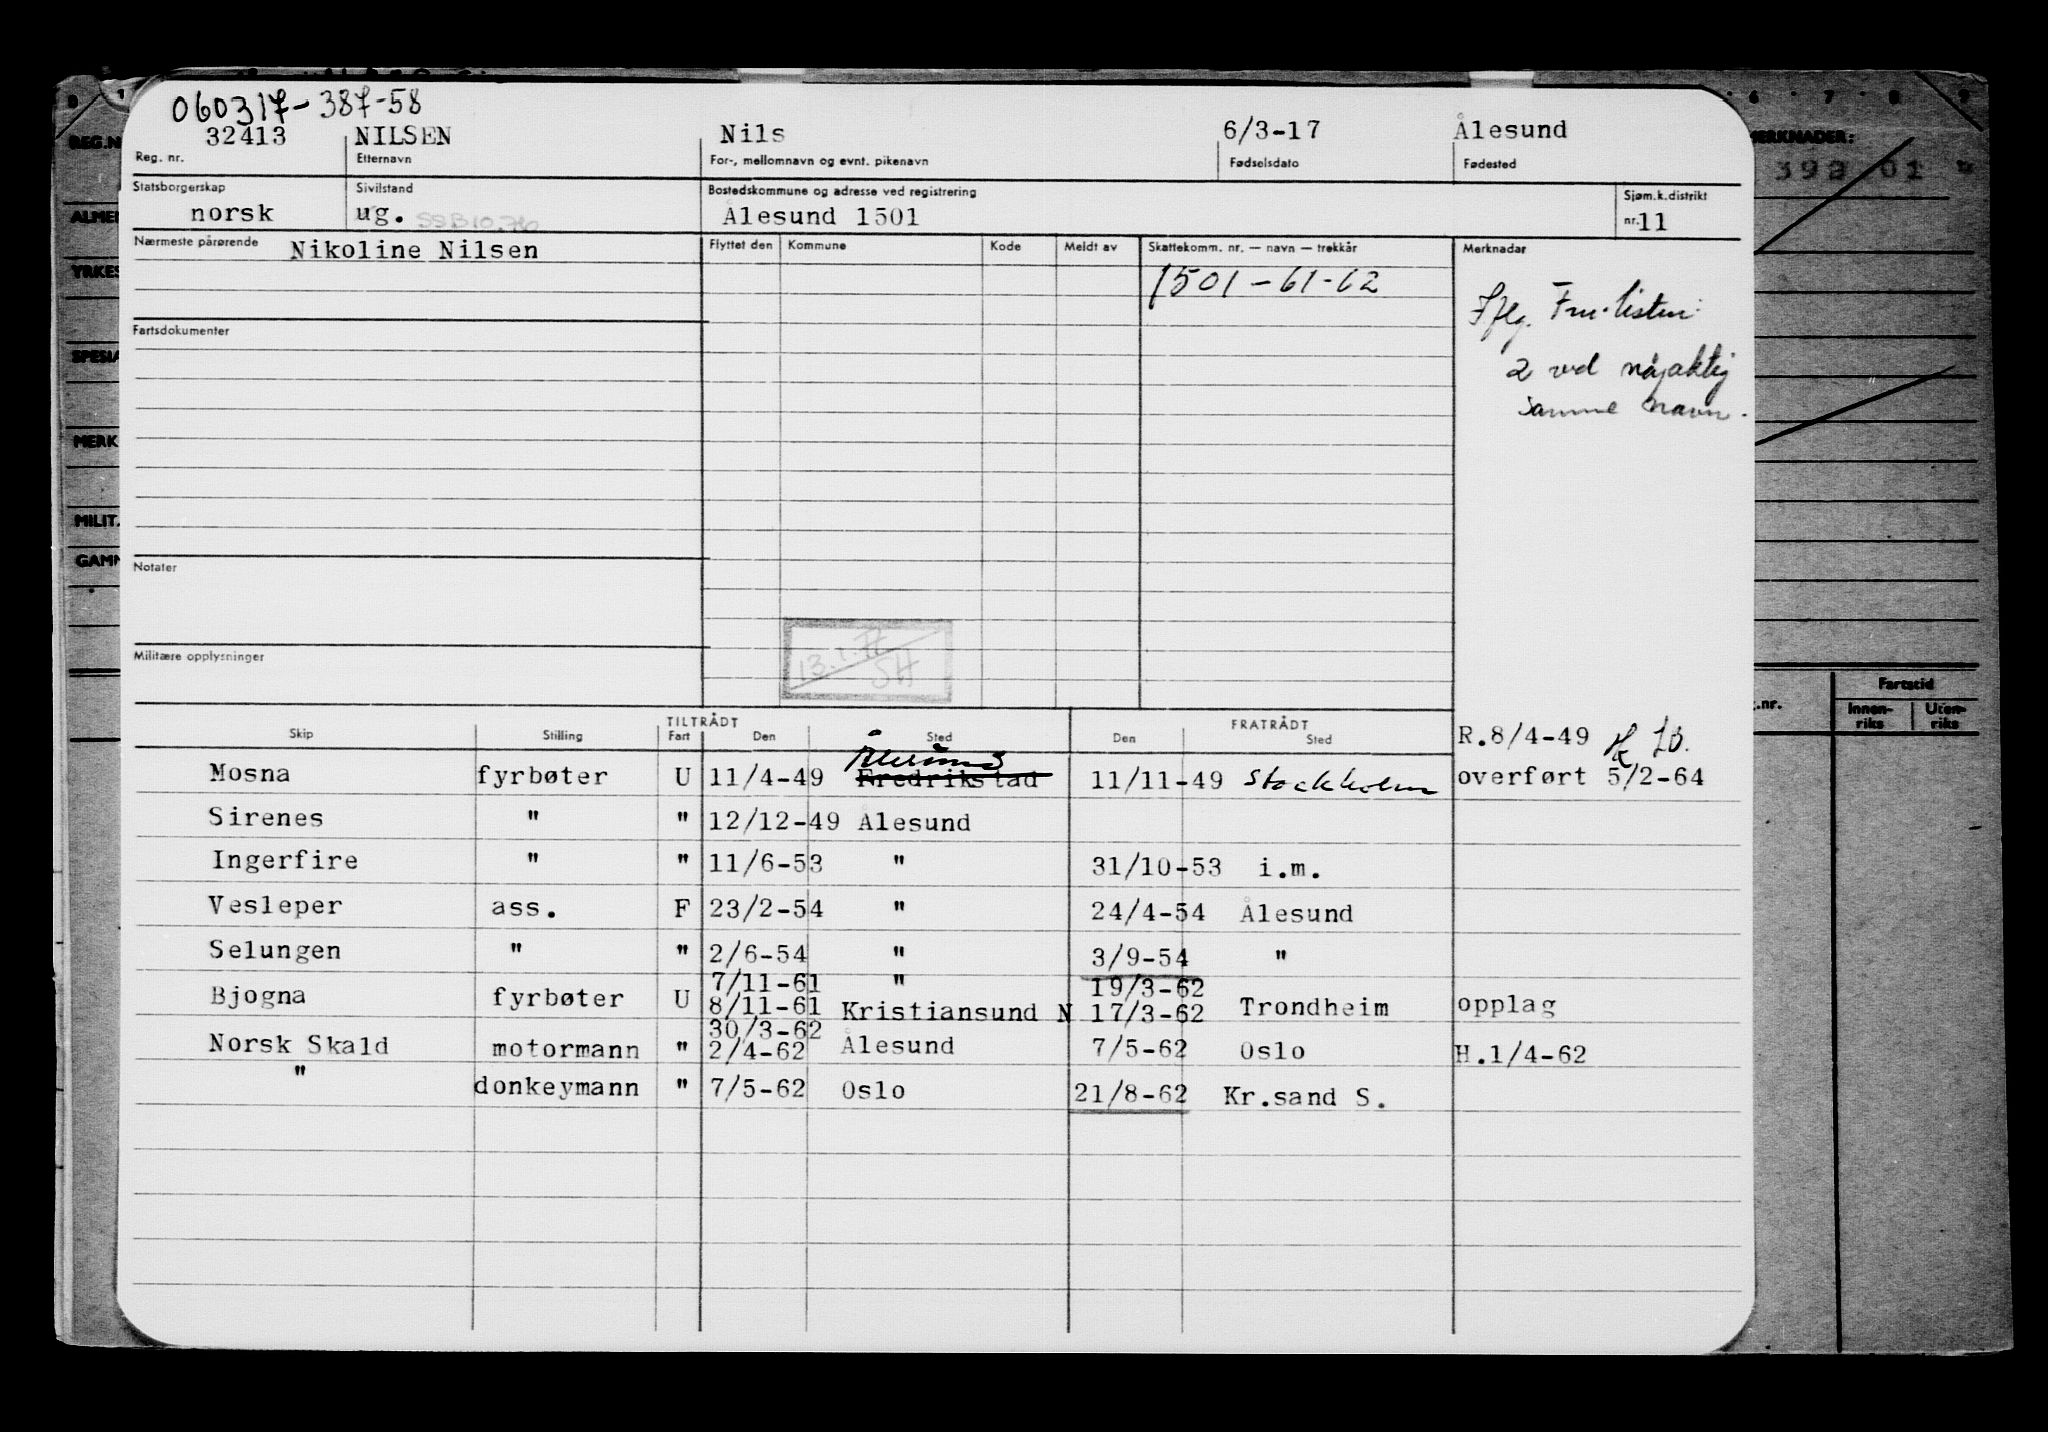 060317-387-58
32413 NILSEN Nils 6/3-17 Ålesund
Reg. nr. Etternavn For-, mellomnavn og evnt. pikenavn Fødselsdato Fødested
Statsborgerskap Sivilstand Bostedskommune og adresse ved registrering Sjøm.k.distrikt
norsk ug. Ålesund 1501 nr. 11
Nærmeste pårørende Nikoline Nilsen Flyttet den Kommune Kode Meldt av Skattekomm. nr. — navn — trekkår Merknadar
1501-61-62
Iflg. Fnr.listen:
2 ved nøyaktig
samme navn.
Fartsdokumenter
Notater
Militære opplysninger
SH
TILTRÅDT FRATRÅDT
Skip Stilling Fart Den Sted Den Sted R.8/4-49
Ålesund
Mosna fyrbøter U 11/4-49 Fredrikstad 11/11-49 Stockholm overført 5/2-64
Sirenes " " 12/12-49 Ålesund
Ingerfire " " 11/6-53 " 31/10-53 i.m.
Vesleper ass. F 23/2-54 " 24/4-54 Ålesund
Selungen " " 2/6-54 " 3/9-54 "
7/11-61 " 19/3-62
Bjogna fyrbøter U 8/11-61 Kristiansund N 17/3-62 Trondheim opplag
30/3-62
Norsk Skald motormann " 2/4-62 Ålesund 7/5-62 Oslo H.1/4-62
" donkeymann " 7/5-62 Oslo 21/8-62 Kr.sand S.
REG.N
ALMEN
YRKES
SPESIA
MERK
MILIT.
GAMM
6 7 8 9
MERKNADER:
01
.nr. Fartstid
Innen-riks Uten-riks